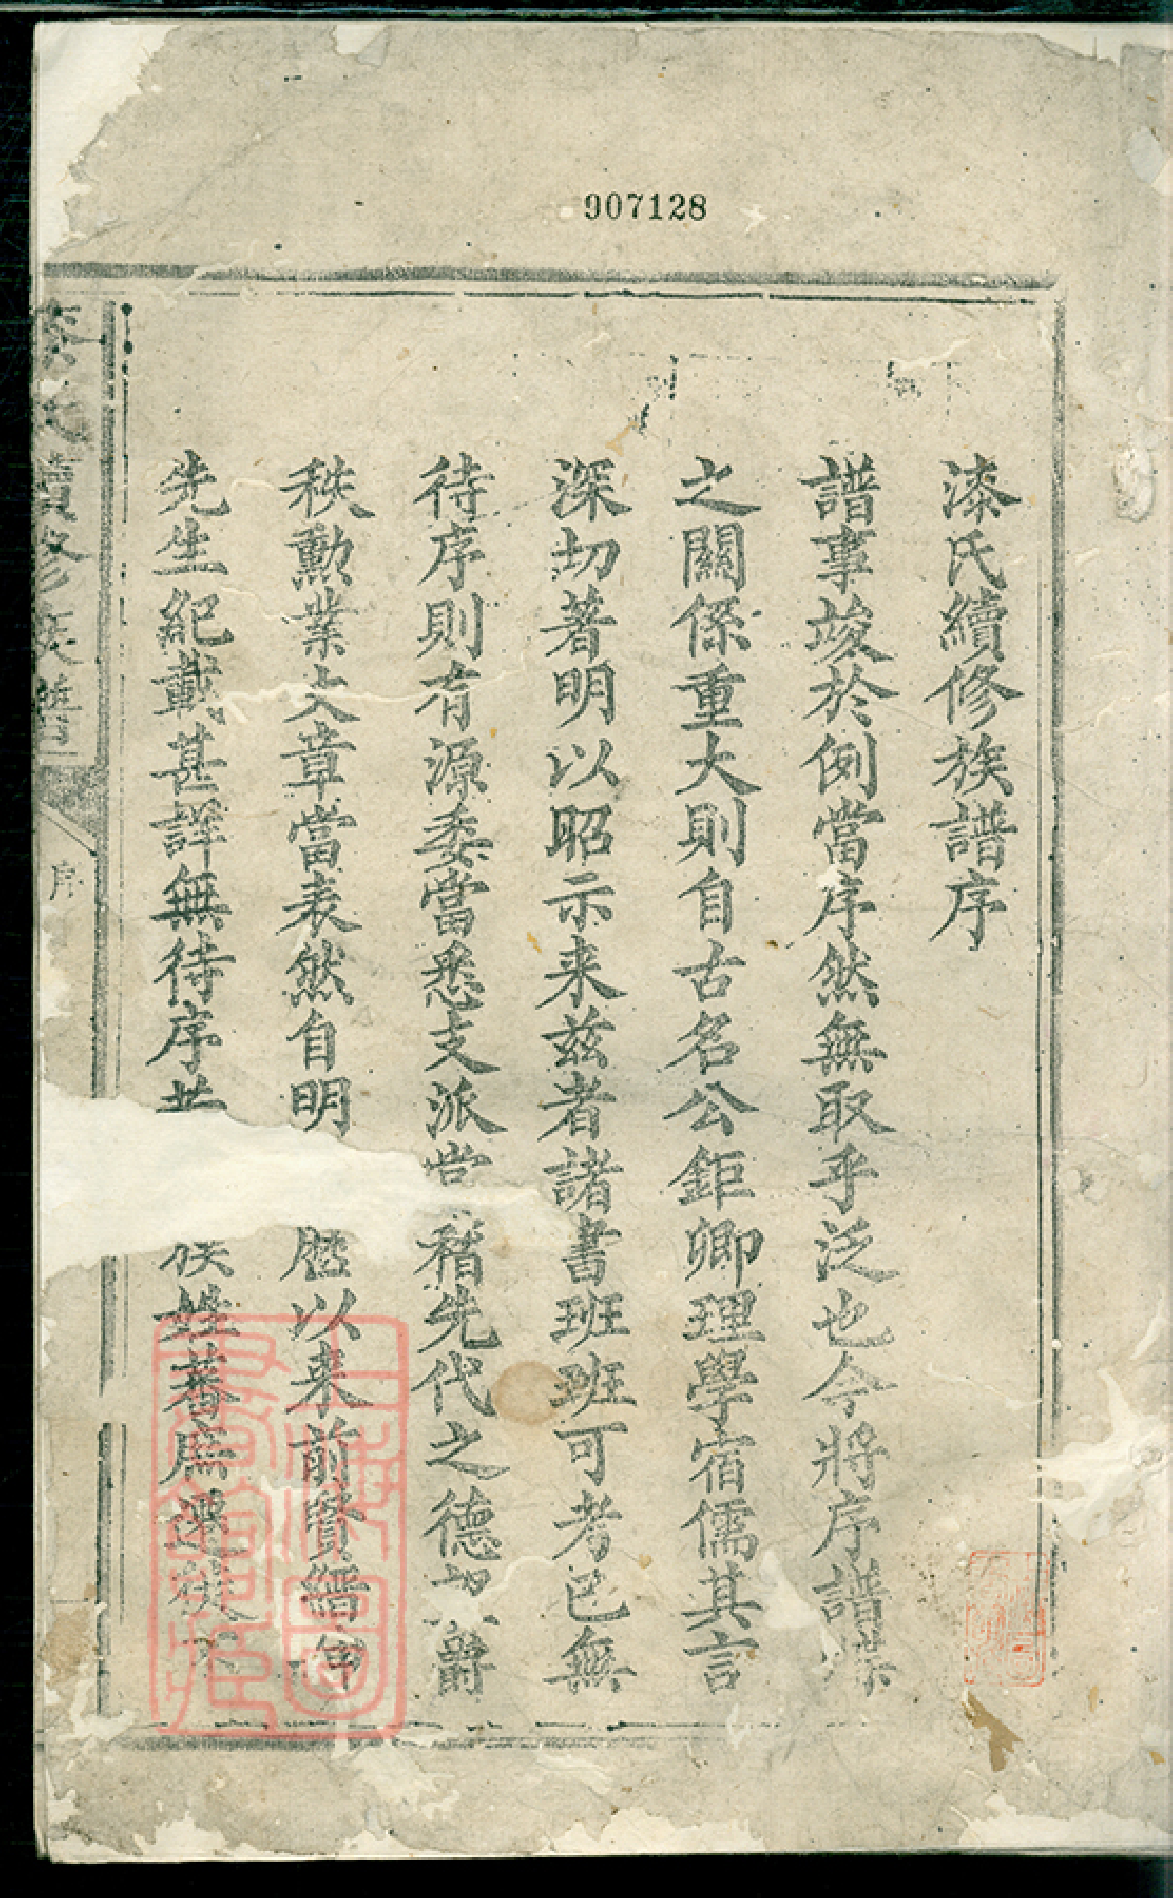 907128
漆氏續修族譜序
譜事竣於例當序然無取乎泛也今將序譜
之關係重大則自古名公鉅卿理學宿儒其言
深切著明以昭示来茲者諸書班班可考已無
待序則有源委當悉支派當稽先代之德 爵
秩勲業文章當表然自明 以来前賢
先生紀載甚詳無待序 族姓蕃庶遷
續修族譜
序
上海圖書館藏